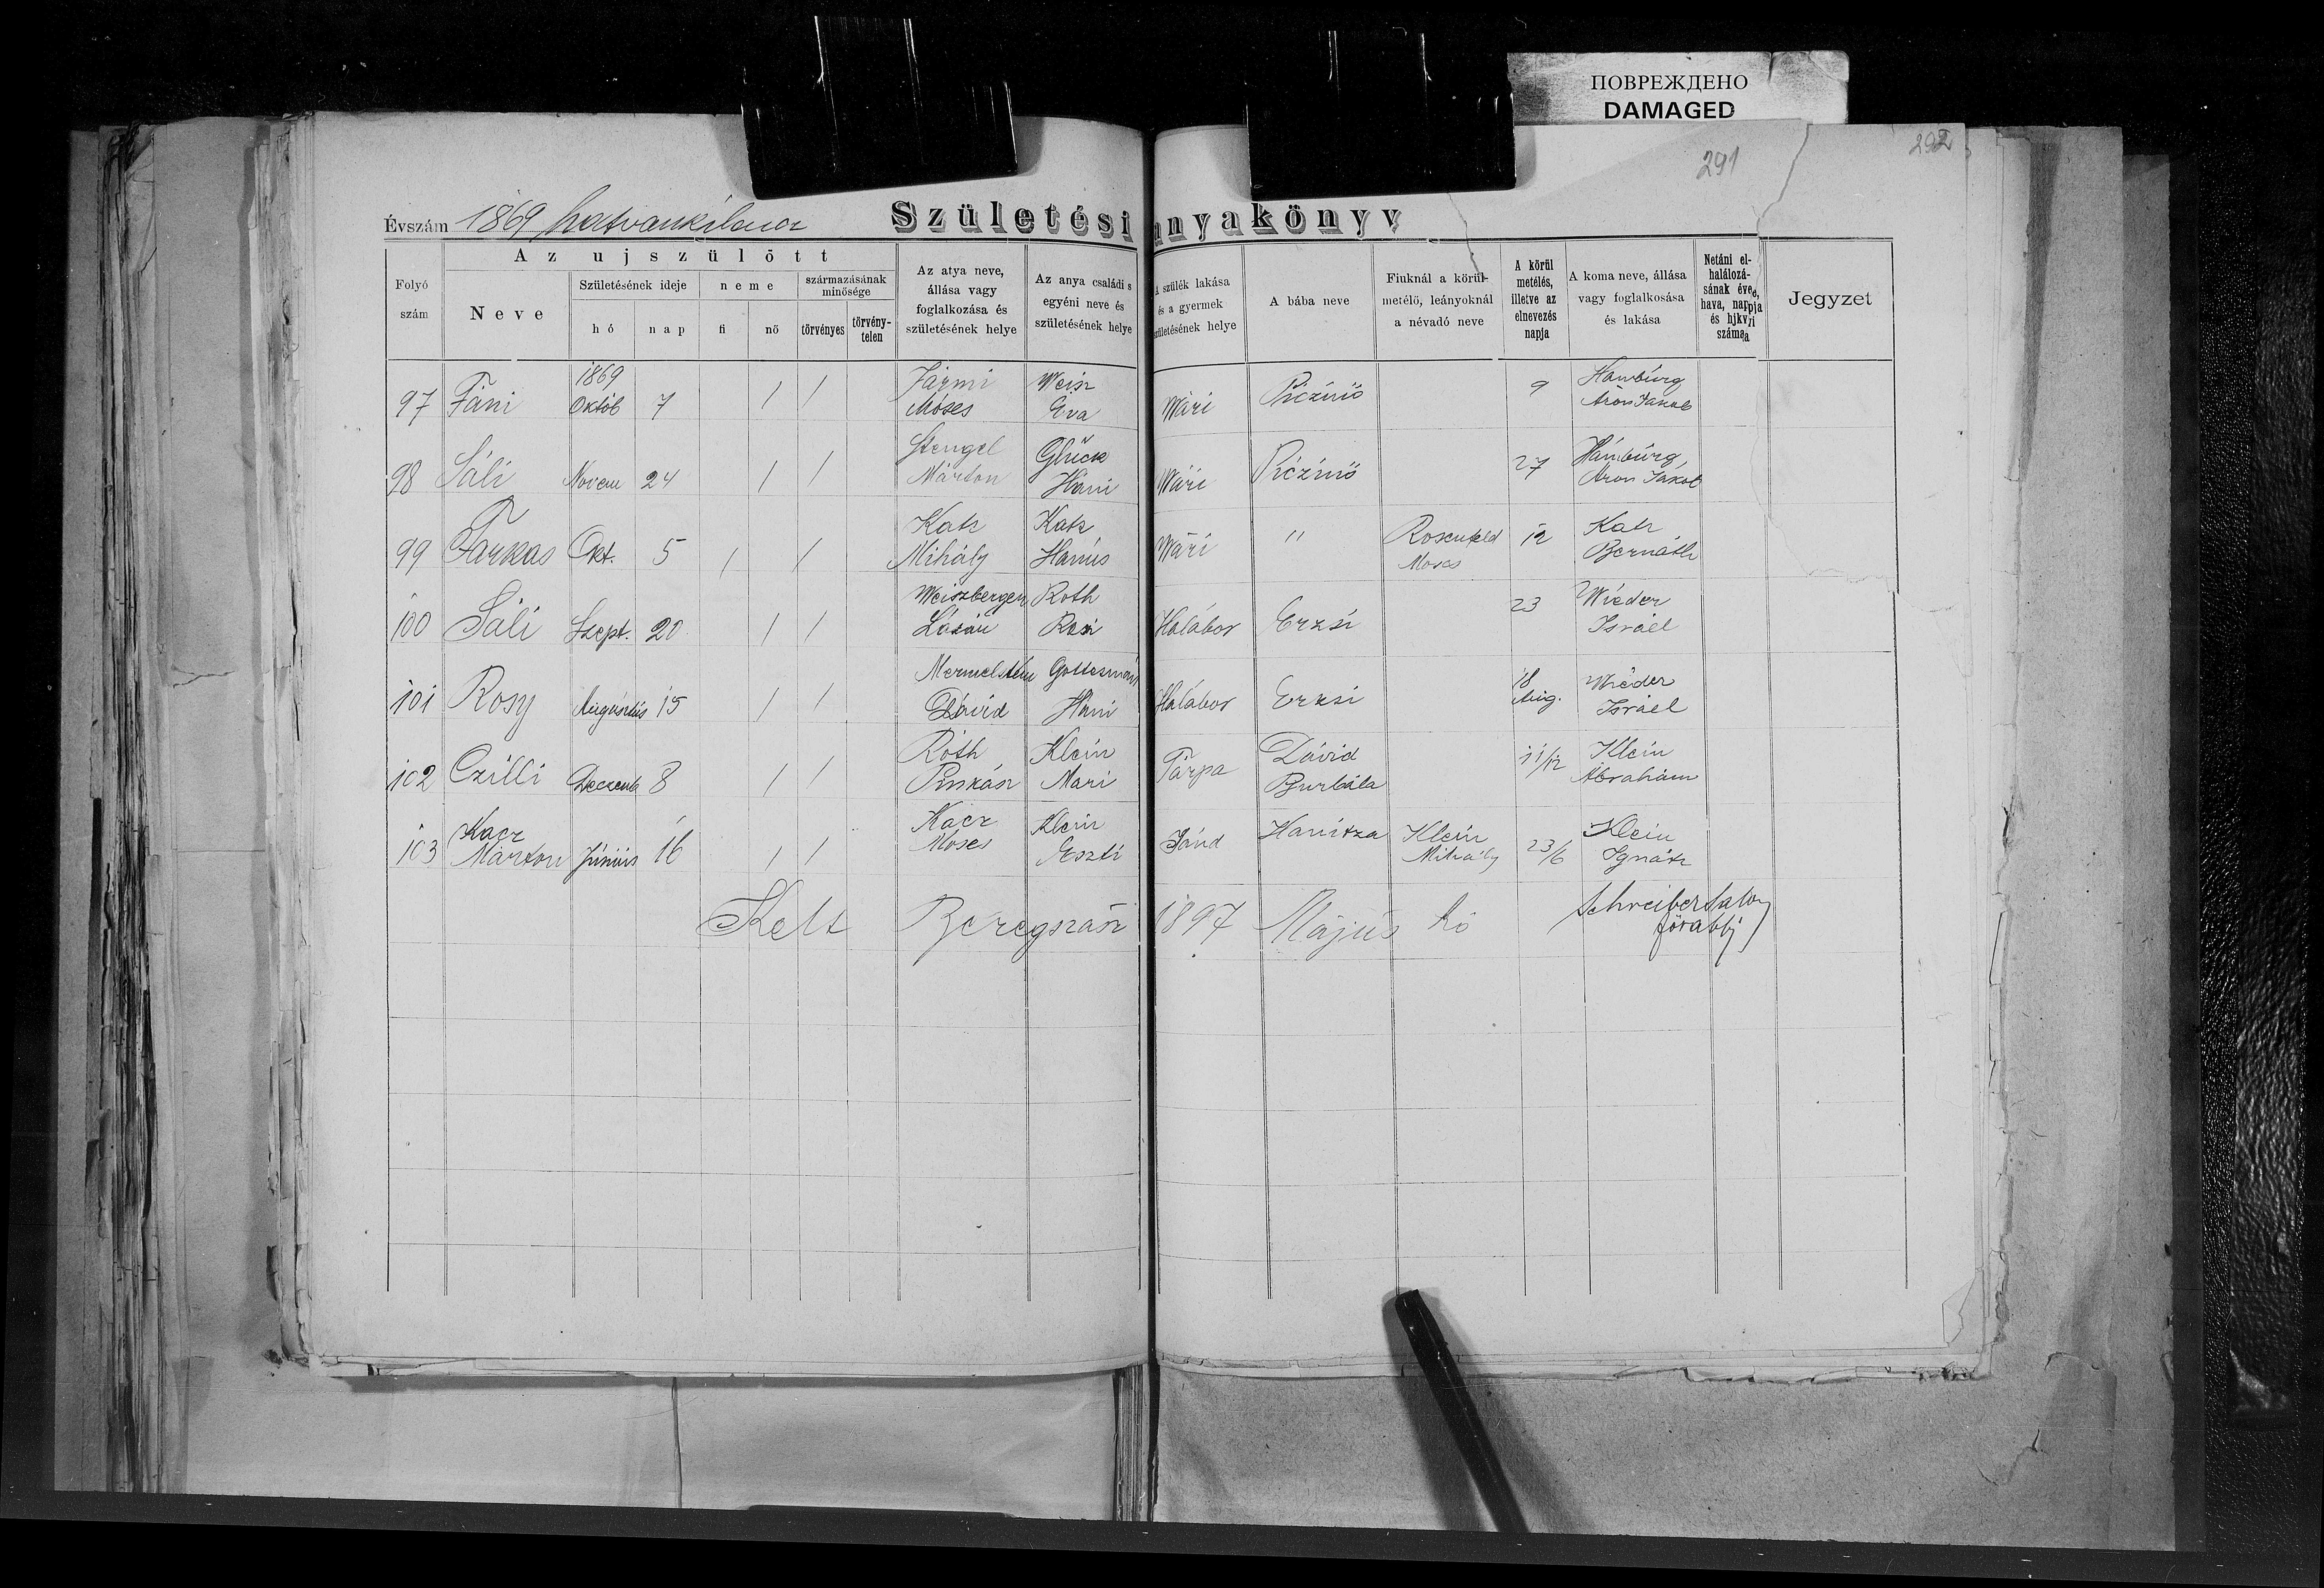 ПОВРЕЖДЕНО
DAMAGED
291
292
Évszám 1869 hatvankilencz
Születési anyakönyv
Folyó szám
Az ujszülött
Neve
Születésének ideje
hó
nap
neme
fi
nő
származásának minősége
törvényes
törvény-telen
Az atya neve, állása vagy foglalkozása és születésének helye
Az anya családi s egyéni neve és születésének helye
A szülék lakása és a gyermek születésének helye
A bába neve
Fiuknál a körül-metélő, leányoknál a névadó neve
A körül metélés, illetve az elnevezés napja
A koma neve, állása vagy foglalkosása és lakása
Netáni el-halálozá-sának éve, hava, napja és hjkvi száma
Jegyzet
97 Fáni 1869 Októb 7 / / Jármi Móses Weisz Eva Mári 9 Hamburg Áron Jakab
98 Sáli Novem 24 / / Stengel Márton Glück Hani Mári 27 Hámburg Áron Jákob
99 Farkas Okt. 5 / / Katz Mihály Katz Hanús Mári " Rosenfeld Moses 12 Katz Bernáth
100 Sáli Szept. 20 / / Weiszberger Lázár Roth Rozi Halábor Erzsi 23 Wieder Isráel
101 Rosy Augusztús 15 / / Mermelstein Dávid Gottesmán Hani Halábor Erzsi 18 Aug. Wieder Isráel
102 Czilli Deczemb 8 / / Róth Pinkász Klein Mari Tarpa Dávid Burbála 11/12 Klein Ábrahám
103 Kacz Márton Június 16 / / Kacz Moses Klein Eszti Jánd Hanitza Klein Mihály 23/6 Klein Ignátz
Kelt Beregszász 1897 Május hó
Schreiber Salom főrabbi